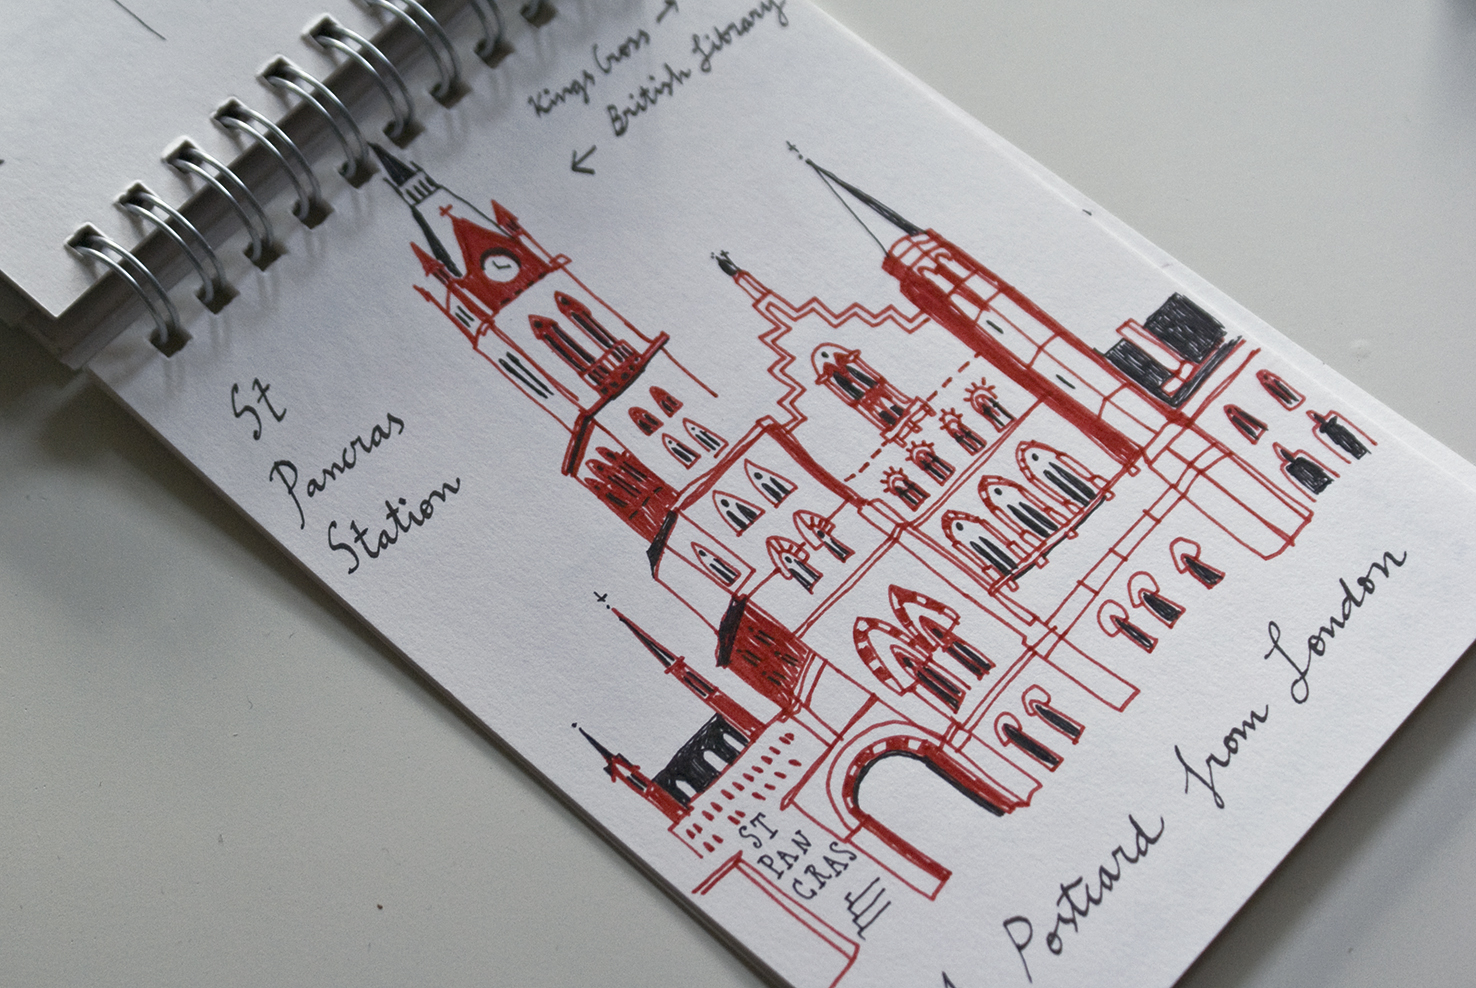 Kings Cross →
← British Library
St
Pancras
Station
ST
PAN
CRAS
Postcard from London